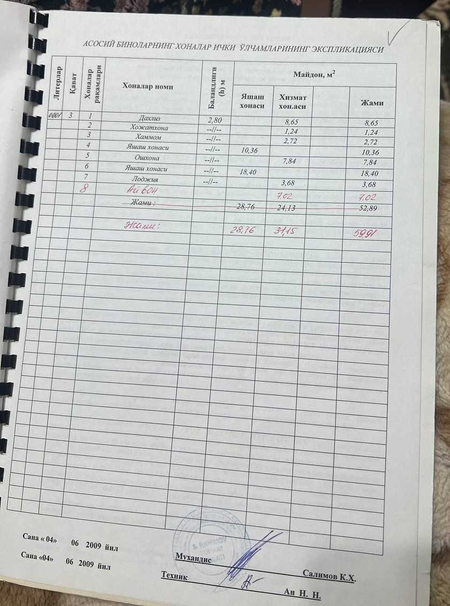 АСОСИЙ БИНОЛАРНИНГ ХОНАЛАР ИЧКИ ЎЛЧАМЛАРИНИНГ ЭКСПЛИКАЦИЯСИ
Литерлар Қават Хоналар рақамлари Хоналар номи Баландлиги (h) м Майдон, м²
Яшаш хонаси Хизмат хон.аси Жами
3 1 Дахлиз 2,80 8,65 8,65
2 Хожатхона --//-- 1,24 1,24
3 Хаммом --//-- 2,72 2,72
4 Яшаш хонаси --//-- 10,36 10,36
5 Ошхона --//-- 7,84 7,84
6 Яшаш хонаси --//-- 18,40 18,40
7 Лоджия --//-- 3,68 3,68
8 Айвон 7,02 7,02
Жами: 28,76 24,13 52,89
Жами: 28,76 31,15 59,91
Сана « 04» 06 2009 йил
Сана «04» 06 2009 йил
Мухандис Салимов К.Х.
Техник Ан Н. Н.